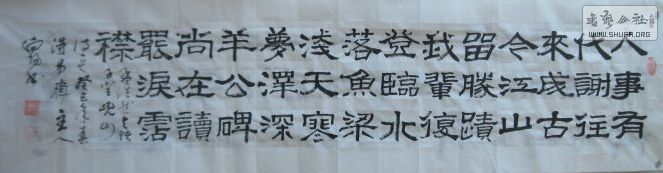 人事有
代謝往
來成古
今江山
留勝蹟
我輩復
登臨水
落魚梁
淺天寒
夢澤深
羊公碑
尚在讀
罷淚霑
襟
癸巳年
主人
WWW.SHUFA.ORG